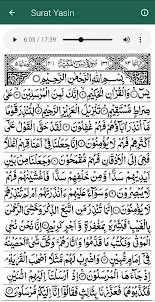 Surat Yasin
6:05 / 17:39
بِسْمِ اللّٰهِ الرَّحْمٰنِ الرَّحِيْمِ
يٰسٓ وَالْقُرْاٰنِ الْحَكِيْمِ اِنَّكَ لَمِنَ الْمُرْسَلِيْنَ عَلٰى
صِرَاطٍ مُّسْتَقِيْمٍ تَنْزِيْلَ الْعَزِيْزِ الرَّحِيْمِ لِتُنْذِرَ قَوْمًا
مَّآ اُنْذِرَ اٰبَآؤُهُمْ فَهُمْ غٰفِلُوْنَ لَقَدْ حَقَّ الْقَوْلُ عَلٰٓى
اَكْثَرِهِمْ فَهُمْ لَا يُؤْمِنُوْنَ اِنَّا جَعَلْنَا فِيْٓ اَعْنَاقِهِمْ اَغْلٰلًا
فَهِيَ اِلَى الْاَذْقَانِ فَهُمْ مُّقْمَحُوْنَ وَجَعَلْنَا مِنْۢ بَيْنِ
اَيْدِيْهِمْ سَدًّا وَّمِنْ خَلْفِهِمْ سَدًّا فَاَغْشَيْنٰهُمْ فَهُمْ لَا
يُبْصِرُوْنَ وَسَوَآءٌ عَلَيْهِمْ ءَاَنْذَرْتَهُمْ اَمْ لَمْ تُنْذِرْهُمْ لَا
يُؤْمِنُوْنَ اِنَّمَا تُنْذِرُ مَنِ اتَّبَعَ الذِّكْرَ وَخَشِيَ الرَّحْمٰنَ
بِالْغَيْبِ فَبَشِّرْهُ بِمَغْفِرَةٍ وَّاَجْرٍ كَرِيْمٍ اِنَّا نَحْنُ نُحْيِ
الْمَوْتٰى وَنَكْتُبُ مَا قَدَّمُوْا وَاٰثَارَهُمْ وَكُلَّ شَيْءٍ اَحْصَيْنٰهُ
فِيْٓ اِمَامٍ مُّبِيْنٍ وَاضْرِبْ لَهُمْ مَّثَلًا اَصْحٰبَ الْقَرْيَةِ
اِذْ جَآءَهَا الْمُرْسَلُوْنَ اِذْ اَرْسَلْنَآ اِلَيْهِمُ اثْنَيْنِ
فَكَذَّبُوْهُمَا فَعَزَّزْنَا بِثَالِثٍ فَقَالُوْٓا اِنَّآ اِلَيْكُمْ